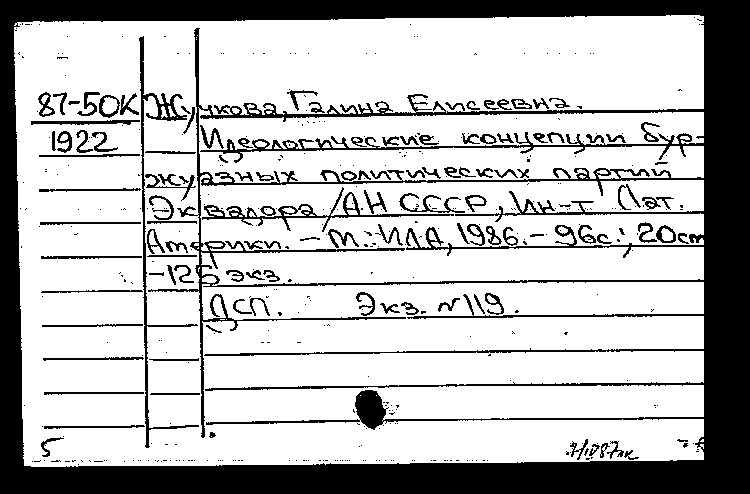 87-50К Жучкова, Галина Елисеевна.
1922 Идеологические концепции бур-
жуазных политических партий
Эквадора / АН СССР, Ин-т Лат.
Америки. - М.: ИЛА, 1986. - 96с.; 20см
-125 экз.
ДСП. Экз. №119.
5